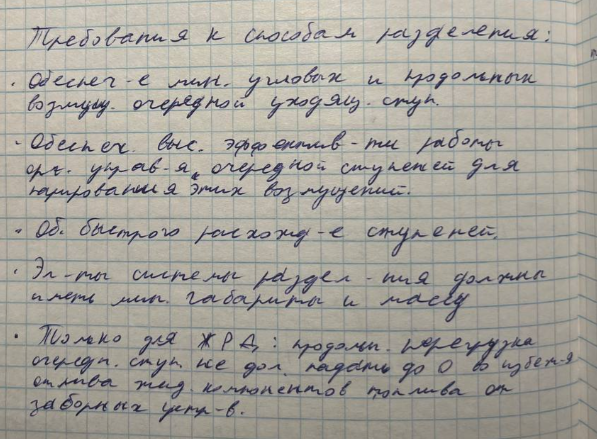 Требования к способам разделения:
· Обеспеч-е мин. угловых и продольных
возмущ. очередной уходящ. ступ.
· Обеспеч. выс. эффектив-ти работы
орг. управ-я очередной ступеней для
парирования этих возмущений.
· Об. быстрого расхожд-е ступеней.
· Эл-ты системы раздел-ния должны
иметь мин. габариты и массу
· Только для ЖРД: продольн. перегрузка
очередн. ступ. не дол. падать до 0 во избеж-я
отлива жид компонентов топлива от
заборных устр-в.